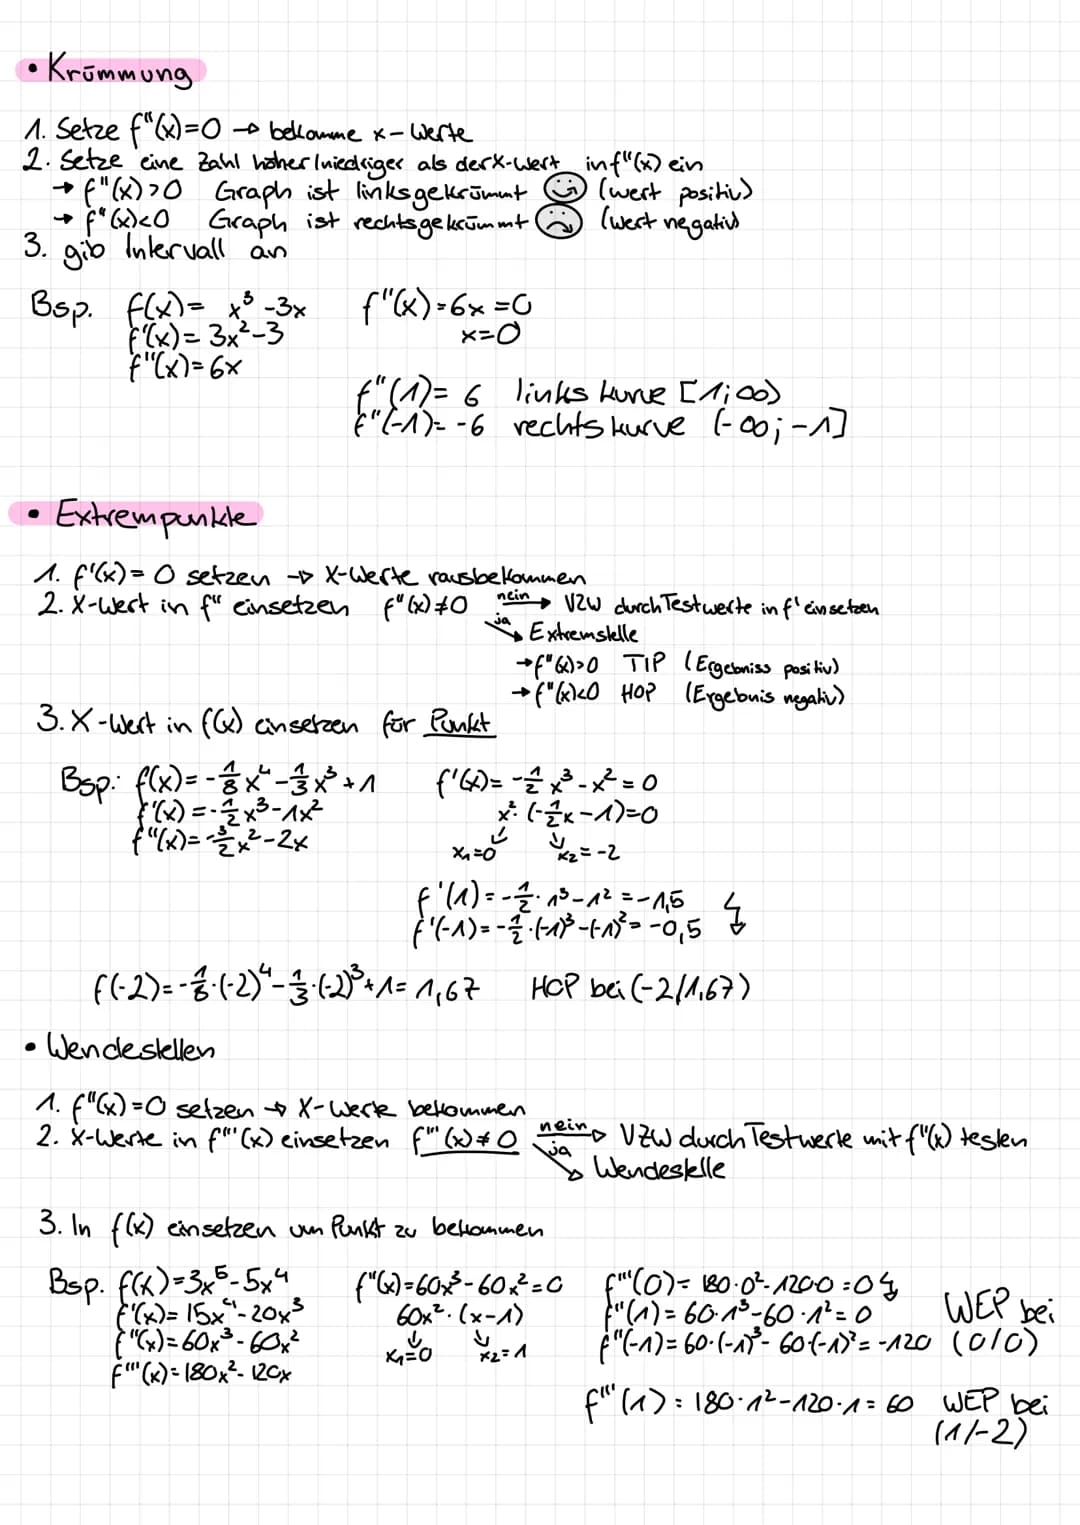 • Krümmung
1. Setze f"(x)=0 → bekomme x-Werte
2. Setze eine Zahl höher/niedriger als der x-Wert in f"(x) ein
→ f"(x)>0 Graph ist linksgekrümmt (wert positiv)
→ f"(x)<0 Graph ist rechtsgekrümmt (wert negativ)
3. gib Intervall an
Bsp. f(x)= x³-3x f"(x)=6x=0
f'(x)= 3x²-3 x=0
f"(x)=6x
f"(1)= 6 links kurve [1;∞)
f"(-1)= -6 rechts kurve (-∞;-1]
• Extrempunkte
1. f'(x)= 0 setzen → X-Werte rausbekommen
2. X-Wert in f" einsetzen f"(x)≠0 nein → VZW durch Testwerte in f' einsetzen
ja → Extremstelle
→ f"(x)>0 TIP (Ergebniss positiv)
→ f"(x)<0 HOP (Ergebnis negativ)
3. X-Wert in f(x) einsetzen für Punkt
Bsp: f(x)= -1/8x⁴-1/3x³+1 f'(x)= -1/2x³-x²=0
f'(x)=-1/2x³-1x² x²·(-1/2x-1)=0
f"(x)=-3/2x²-2x x₁=0 x₂=-2
f'(1)=-1/2·1³-1²=-1,5
f'(-1)=-1/2·(-1)³-(-1)²=-0,5
f(-2)=-1/8·(-2)⁴-1/3·(-2)³+1= 1,67 HOP bei (-2/1,67)
• Wendestellen
1. f"(x)=0 setzen → X-Werte bekommen
2. X-Werte in f'''(x) einsetzen f'''(x)≠0 nein → VZW durch Testwerte mit f"(x) testen
ja → Wendestelle
3. In f(x) einsetzen um Punkt zu bekommen
Bsp. f(x)=3x⁵-5x⁴ f"(x)=60x³-60x²=0 f'''(0)= 180·0²-120·0=0
f'(x)= 15x⁴-20x³ 60x²·(x-1) f"(1)= 60·1³-60·1²=0 WEP bei
f"(x)=60x³-60x² x₁=0 x₂=1 f"(-1)=60·(-1)³-60·(-1)²=-120 (0/0)
f'''(x)=180x²-120x
f'''(1)=180·1²-120·1=60 WEP bei
(1/-2)